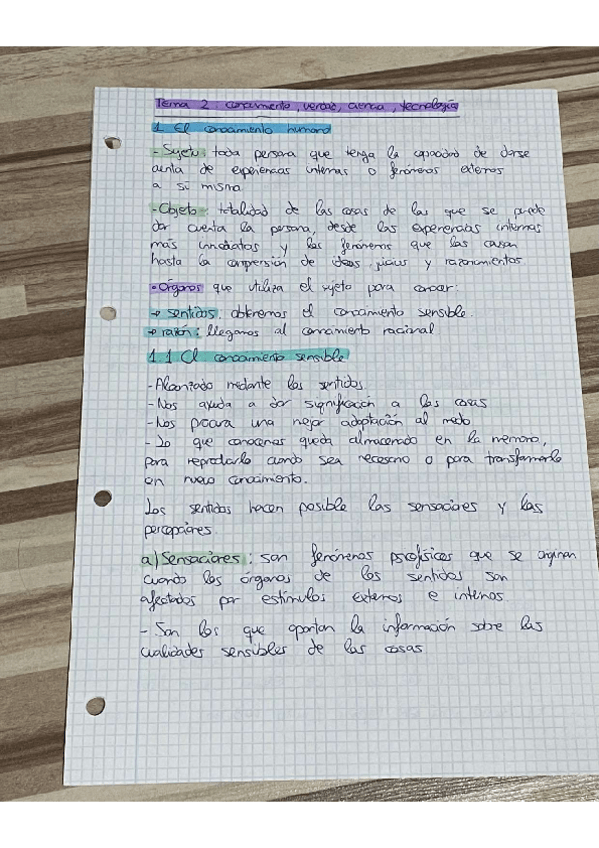 Tema 2 conocimiento, verdad, ciencia, tecnología
1 El conocimiento humano
- Sujeto: toda persona que tenga la capacidad de darse
cuenta de experiencias internas o fenómenos externos
a si misma
- Objeto: totalidad de las cosas de las que se puede
dar cuenta la persona, desde las experiencias internas
más inmediatas y los fenómenos que las causan
hasta la comprensión de ideas, juicios y razonamientos
• Órganos que utiliza el sujeto para conocer:
→ sentidos: obtenemos el conocimiento sensible.
→ razón: llegamos al conocimiento racional
1.1 El conocimiento sensible
- Alcanzado mediante los sentidos.
- Nos ayuda a dar significación a las cosas
- Nos procura una mejor adaptación al medio
- Lo que conocemos queda almacenado en la memoria,
para reproducirlo cuando sea necesario o para transformarlo
en nuevo conocimiento.
Los sentidos hacen posible las sensaciones y las
percepciones
a) Sensaciones: son fenómenos psicofísicos que se originan
cuando los órganos de los sentidos son
afectados por estímulos externos e internos
- Son los que aportan la información sobre las
cualidades sensibles de las cosas